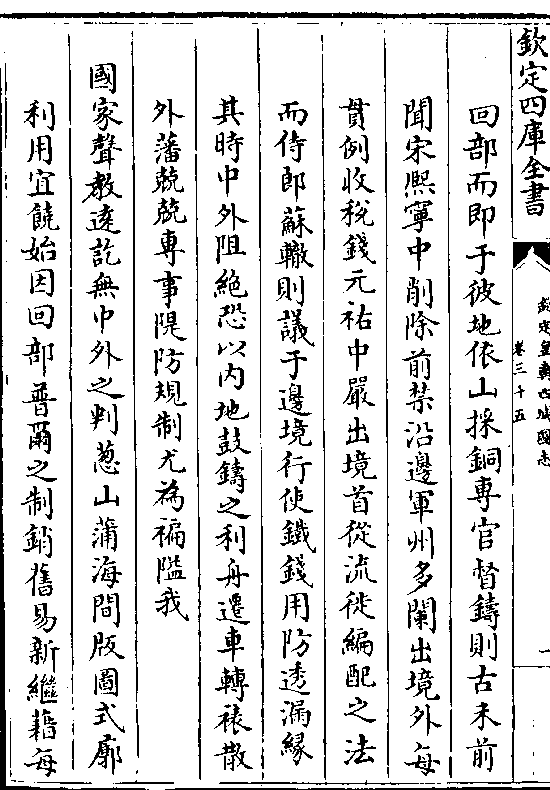 欽定四庫全書
欽定皇輿西域圖志
卷三十五
一
回部而即于彼地依山採銅專官督鑄則古未前
聞宋熙寧中削除前禁沿邊軍州多闌出境外每
貫例收稅錢元祐中嚴出境首從流徙編配之法
而侍郎蘇轍則議于邊境行使鐵錢用防透漏緣
其時中外阻絶恐以内地鼓鑄之利舟遷車轉裱散
外藩兢兢專事隄防規制尤為褊隘我
國家聲教遠訖無中外之判葱山蒲海間版圖式廓
利用宜饒始因回部普爾之制銷舊易新繼藉每